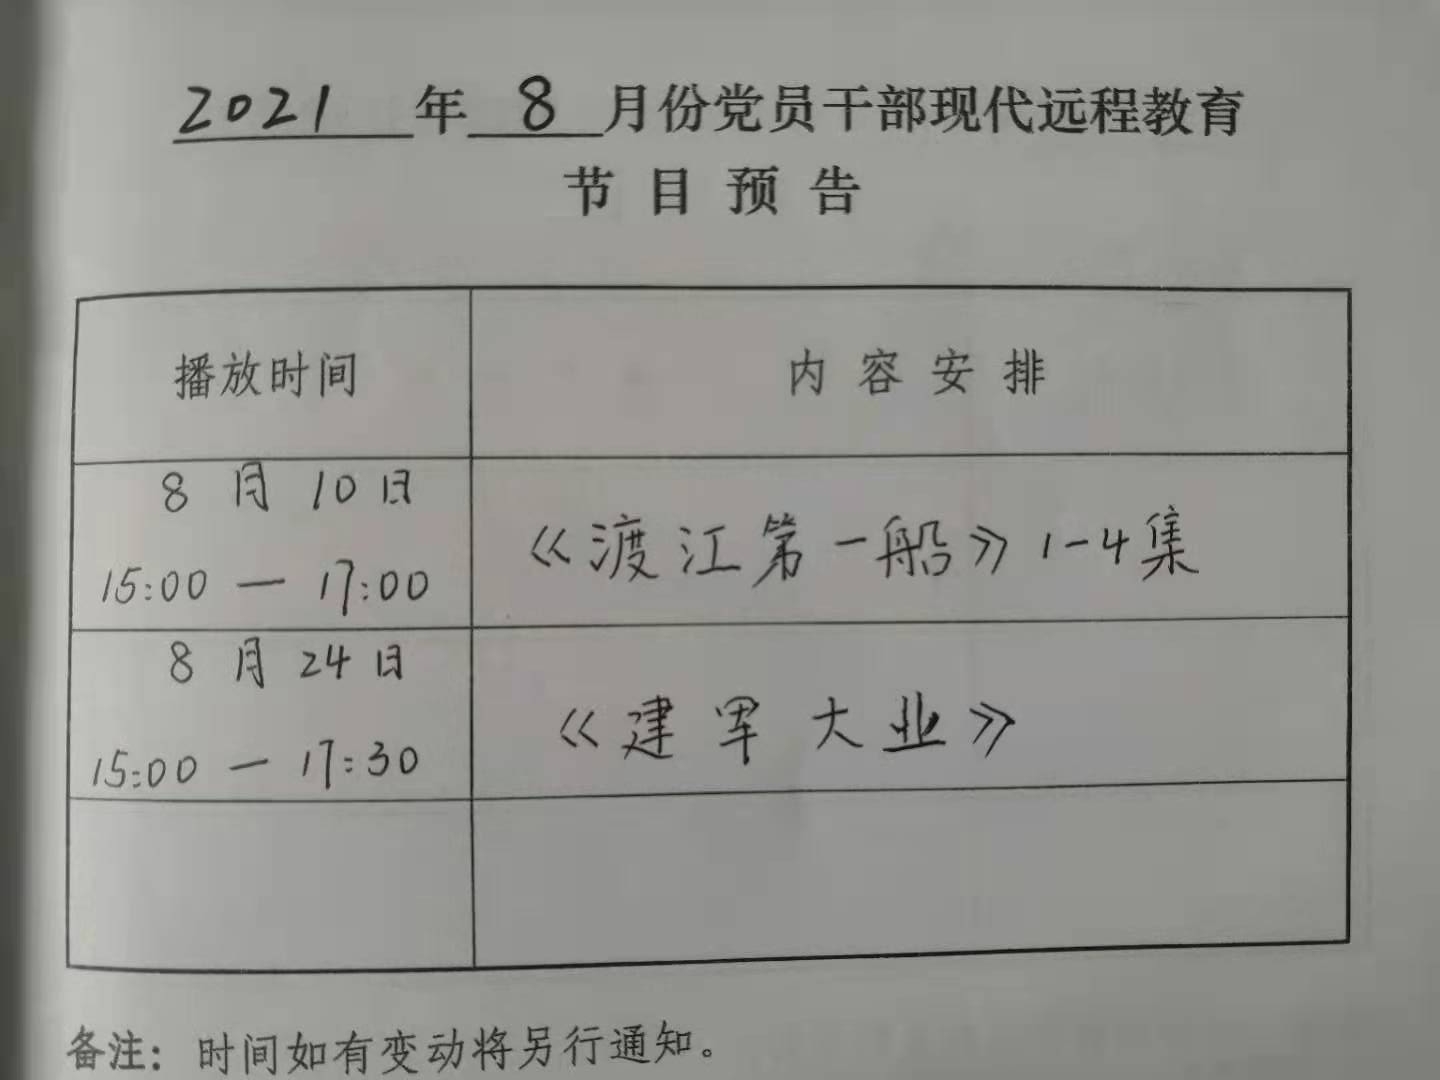 2021年8月份党员干部现代远程教育
节目预告
播放时间 内容安排
8月10日
15:00—17:00
《渡江第一船》1-4集
8月24日
15:00—17:30
《建军大业》
备注：时间如有变动将另行通知。